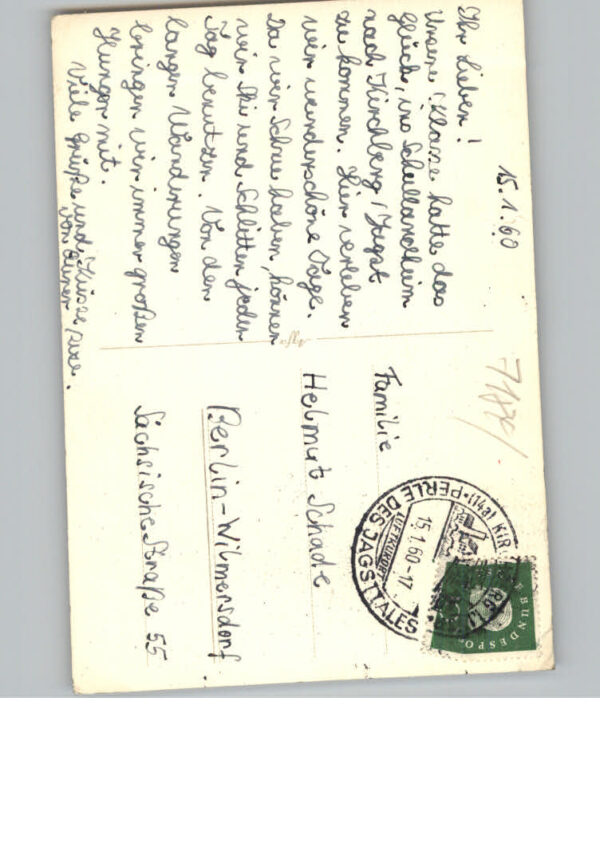 15.1.60
Ihr Lieben!
Unsere Klasse hatte das
Glück, ins Schullandheim
nach Kirchberg/Jagst
zu kommen. Hier verleben
wir wunderschöne Tage.
Da wir Schnee haben, können
wir Ski und Schlitten jeden
Tag benutzen. Von den
langen Wanderungen
bringen wir immer großen
Hunger mit.
Viele Grüße und Küsse
von eurer
Familie
Helmut Schade
Berlin-Wilmersdorf
Sächsische Straße 55
(14a) KIRCHBERG
PERLE DES JAGSTTALES
15.1.60-17
LUFTKURORT
BUNDESPO